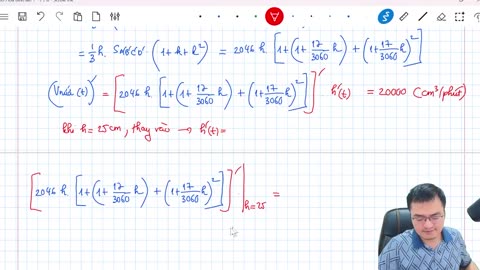 = 1/3 h. Sđáy nhỏ. (1 + k + k²) = 2046 h. [1+(1+ 17/3060 h) + (1+ 17/3060 h)²]
(Vnước(t))' = [2046 h. [1+(1+ 17/3060 h) + (1+ 17/3060 h)²]]' h'(t) = 20000 (cm³/phút)
khi h = 25cm, thay vào → h'(t) =
[2046 h. [1+(1+ 17/3060 h) + (1+ 17/3060 h)²]]'|h=25 =